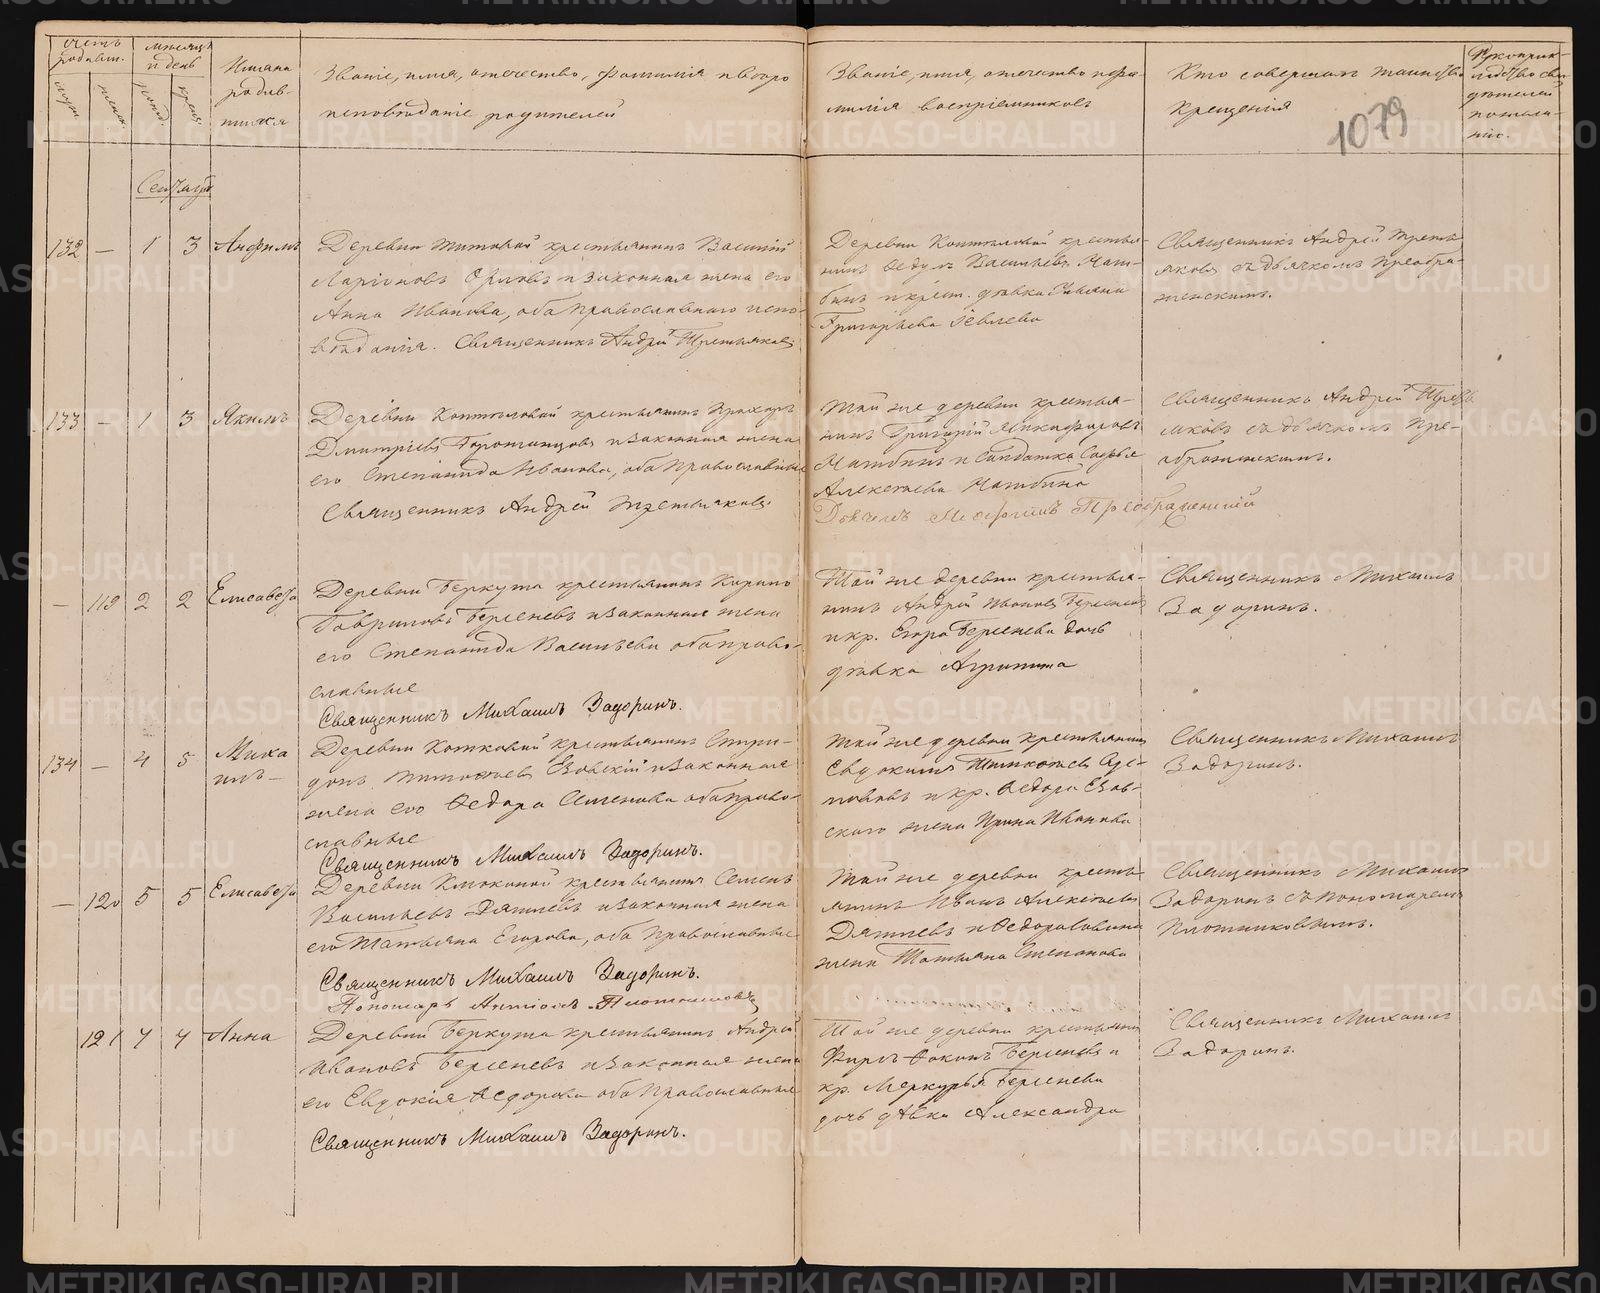 счетъ родивш.
мужск.
женск.
мѣсяцъ и день
рожд.
крещ.
Имяна родив-
шихся
Званіе, имя, отечество, фамилія и вѣро
исповѣданіе родителей
Званіе, имя, отечество и фа-
милія воспріемниковъ
Кто совершалъ таинство
крещенія
Рукоприк-
ладство сви-
дѣтелей
по жела-
нію.
1079
Сентябрь
132 — 1 3 Анфимъ
Деревни Титовой крестьянинъ Василій
Ларіоновъ Орловъ и законная жена его
Анна Иванова, оба православнаго испо-
вѣданія. Священникъ Андрей Третьяковъ
Деревни Коптяловой крестья-
нинъ Ѳедулъ Васильевъ
и крест. дѣвка Ульяна
Григорьева
Священникъ Андрей Треть
яковъ съ дьячкомъ Преобра-
женскимъ.
133 — 1 3 Якимъ
Деревни Коптяловой крестьянинъ Прохоръ
Дмитріевъ и законная жена
его Степанида Иванова, оба православные
Священникъ Андрей Третьяковъ
Той же деревни крестья-
нинъ Григорій Никифоровъ
и Солдатка Софья
Алексѣева
Дьячекъ Преображенскій
Священникъ Андрей Треть
яковъ съ дьячкомъ Пре-
ображенскимъ.
— 119 2 2 Елисавета
Деревни Беркута крестьянинъ Кирило
Гавриловъ Берсеневъ и законная жена
его Степанида Васильева оба право-
славные
Священникъ Михаилъ Задоринъ.
Той же деревни крестья-
нинъ Андрей Ивановъ Берсеневъ
и кр. Егора Берсенева дочь
дѣвка Агрипина
Священникъ Михаилъ
Задоринъ.
134 — 4 5 Миха
илъ —
Деревни Котковой крестьянинъ Спири-
донъ Тимоѳеевъ Езовскій и законная
жена его Ѳедора Семенова оба право-
славные
Священникъ Михаилъ Задоринъ.
Той же деревни крестьянинъ
Евдокимъ Тимоѳеевъ
и кр. Ѳедора Езов-
скаго жена Ирина Иванова
Священникъ Михаилъ
Задоринъ.
— 120 5 5 Елисавета
Деревни Клюкиной крестьянинъ Семенъ
Васильевъ Дятлевъ и законная жена
его Татьяна Егорова, оба православные
Священникъ Михаилъ Задоринъ.
Пономарь Плотниковъ
Той же деревни кресть
янинъ Иванъ Алексѣевъ
Дятлевъ и Ѳедора
жена Татьяна Степанова
Священникъ Михаилъ
Задоринъ съ пономаремъ
Плотниковымъ.
121 7 7 Анна
Деревни Беркута крестьянинъ Андрей
Ивановъ Берсеневъ и законная жена
его Евдокія Ѳедорова оба православные
Священникъ Михаилъ Задоринъ.
Той же деревни крестьянинъ
Фирсъ Ѳокинъ Берсеневъ и
кр. Меркурья Берсенева
дочь дѣвка Александра
Священникъ Михаилъ
Задоринъ.
METRIKI.GASO-URAL.RU